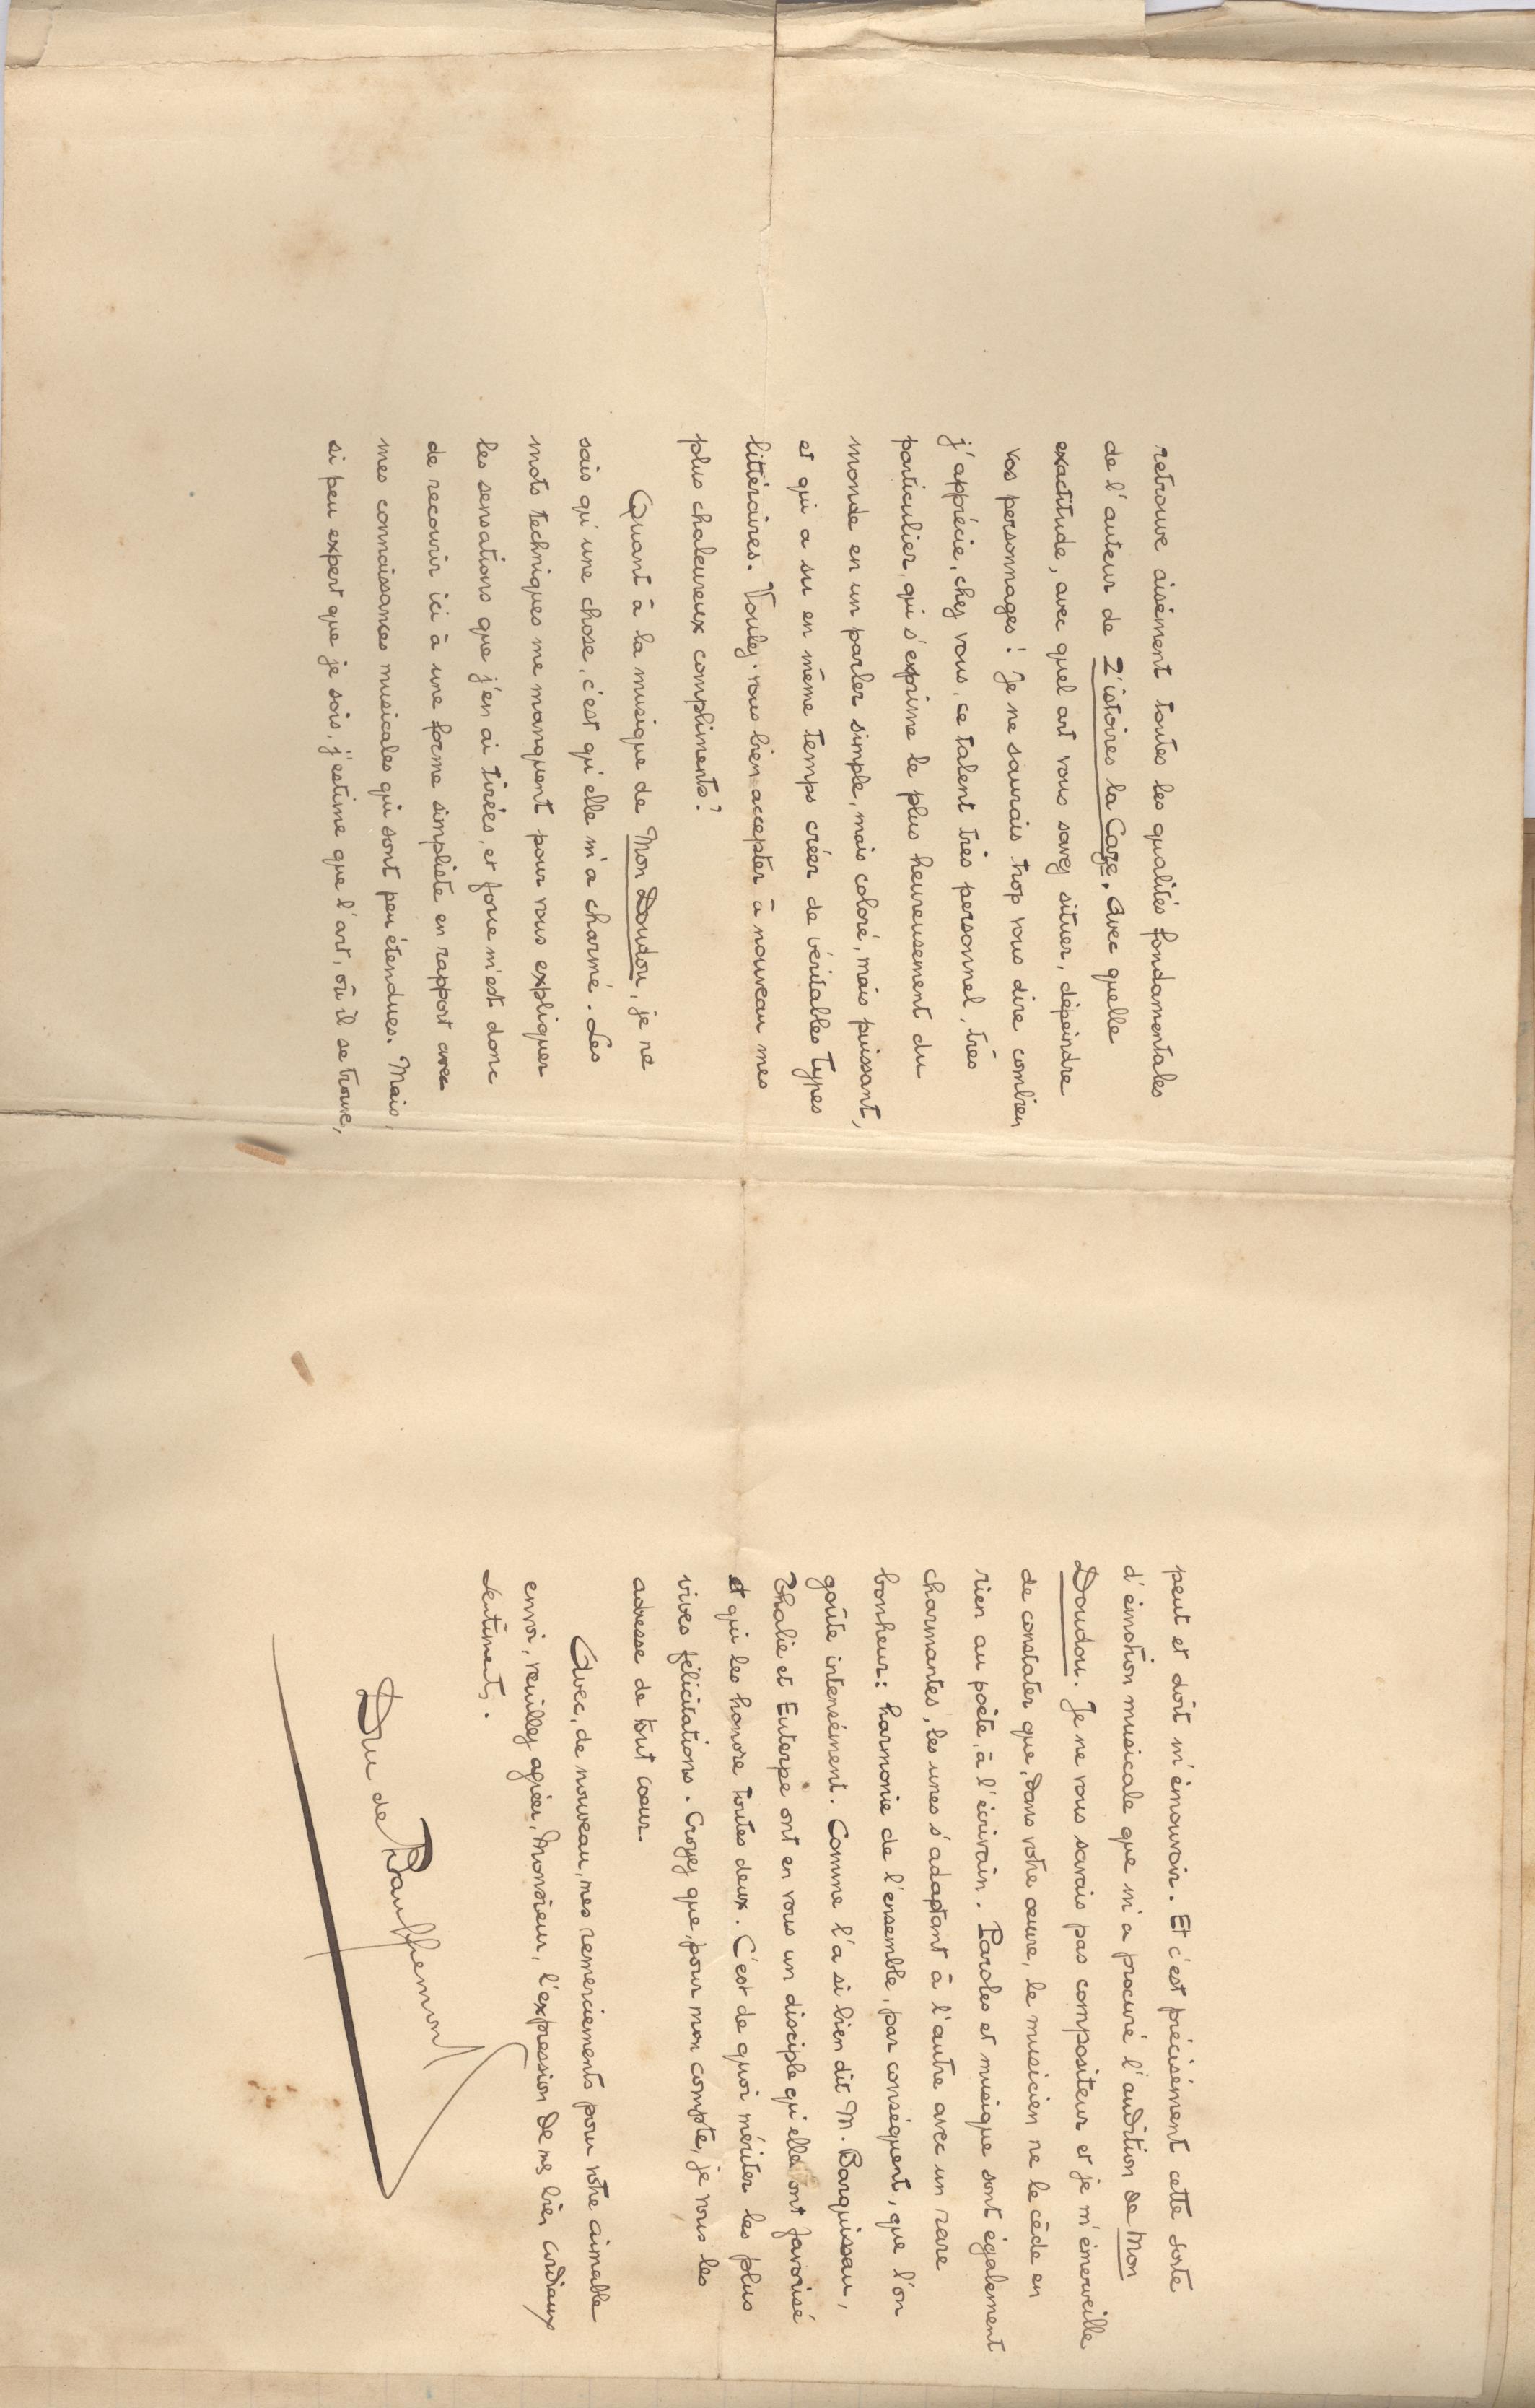 retrouve aisément toutes les qualités fondamentales
de l'auteur de Z'istoires la Caze. Avec quelle
exactitude, avec quel art vous savez situer, dépeindre
vos personnages! Je ne saurais trop vous dire combien
j'apprécie, chez vous, ce talent très personnel, très
particulier, qui s'exprime le plus heureusement du
monde en un parler simple, mais coloré, mais puissant,
et qui a su en même temps créer de véritables types
littéraires. Voulez-vous bien accepter à nouveau mes
plus chaleureux compliments?
Quant à la musique de Mon Doudou, je ne
sais qu'une chose, c'est qu'elle m'a charmé. Les
mots techniques me manquent pour vous expliquer
les sensations que j'en ai tirées, et force m'est donc
de recourir ici à une forme simpliste en rapport avec
mes connaissances musicales qui sont peu étendues. Mais,
si peu expert que je sois, j'estime que l'art, où il se trouve,
peut et doit m'émouvoir. Et c'est précisément cette sorte
d'émotion musicale que m'a procuré l'audition de Mon
Doudou. Je ne vous savais pas compositeur et je m'émerveille
de constater que, dans votre œuvre, le musicien ne le cède en
rien au poète, à l'écrivain. Paroles et musique sont également
charmantes, les unes s'adaptant à l'autre avec un rare
bonheur: harmonie de l'ensemble, par conséquent, que l'on
goûte intensément. Comme l'a si bien dit M. Barquissau,
Thalie et Euterpe ont en vous un disciple qu'elles ont favorisé
et qui les honore toutes deux. C'est de quoi mériter les plus
vives félicitations. Croyez que, pour mon compte, je vous les
adresse de tout cœur.
Avec, de nouveau, mes remerciements pour votre aimable
envoi, veuillez agréer, Monsieur, l'expression de mes bien cordiaux
sentiments.
de